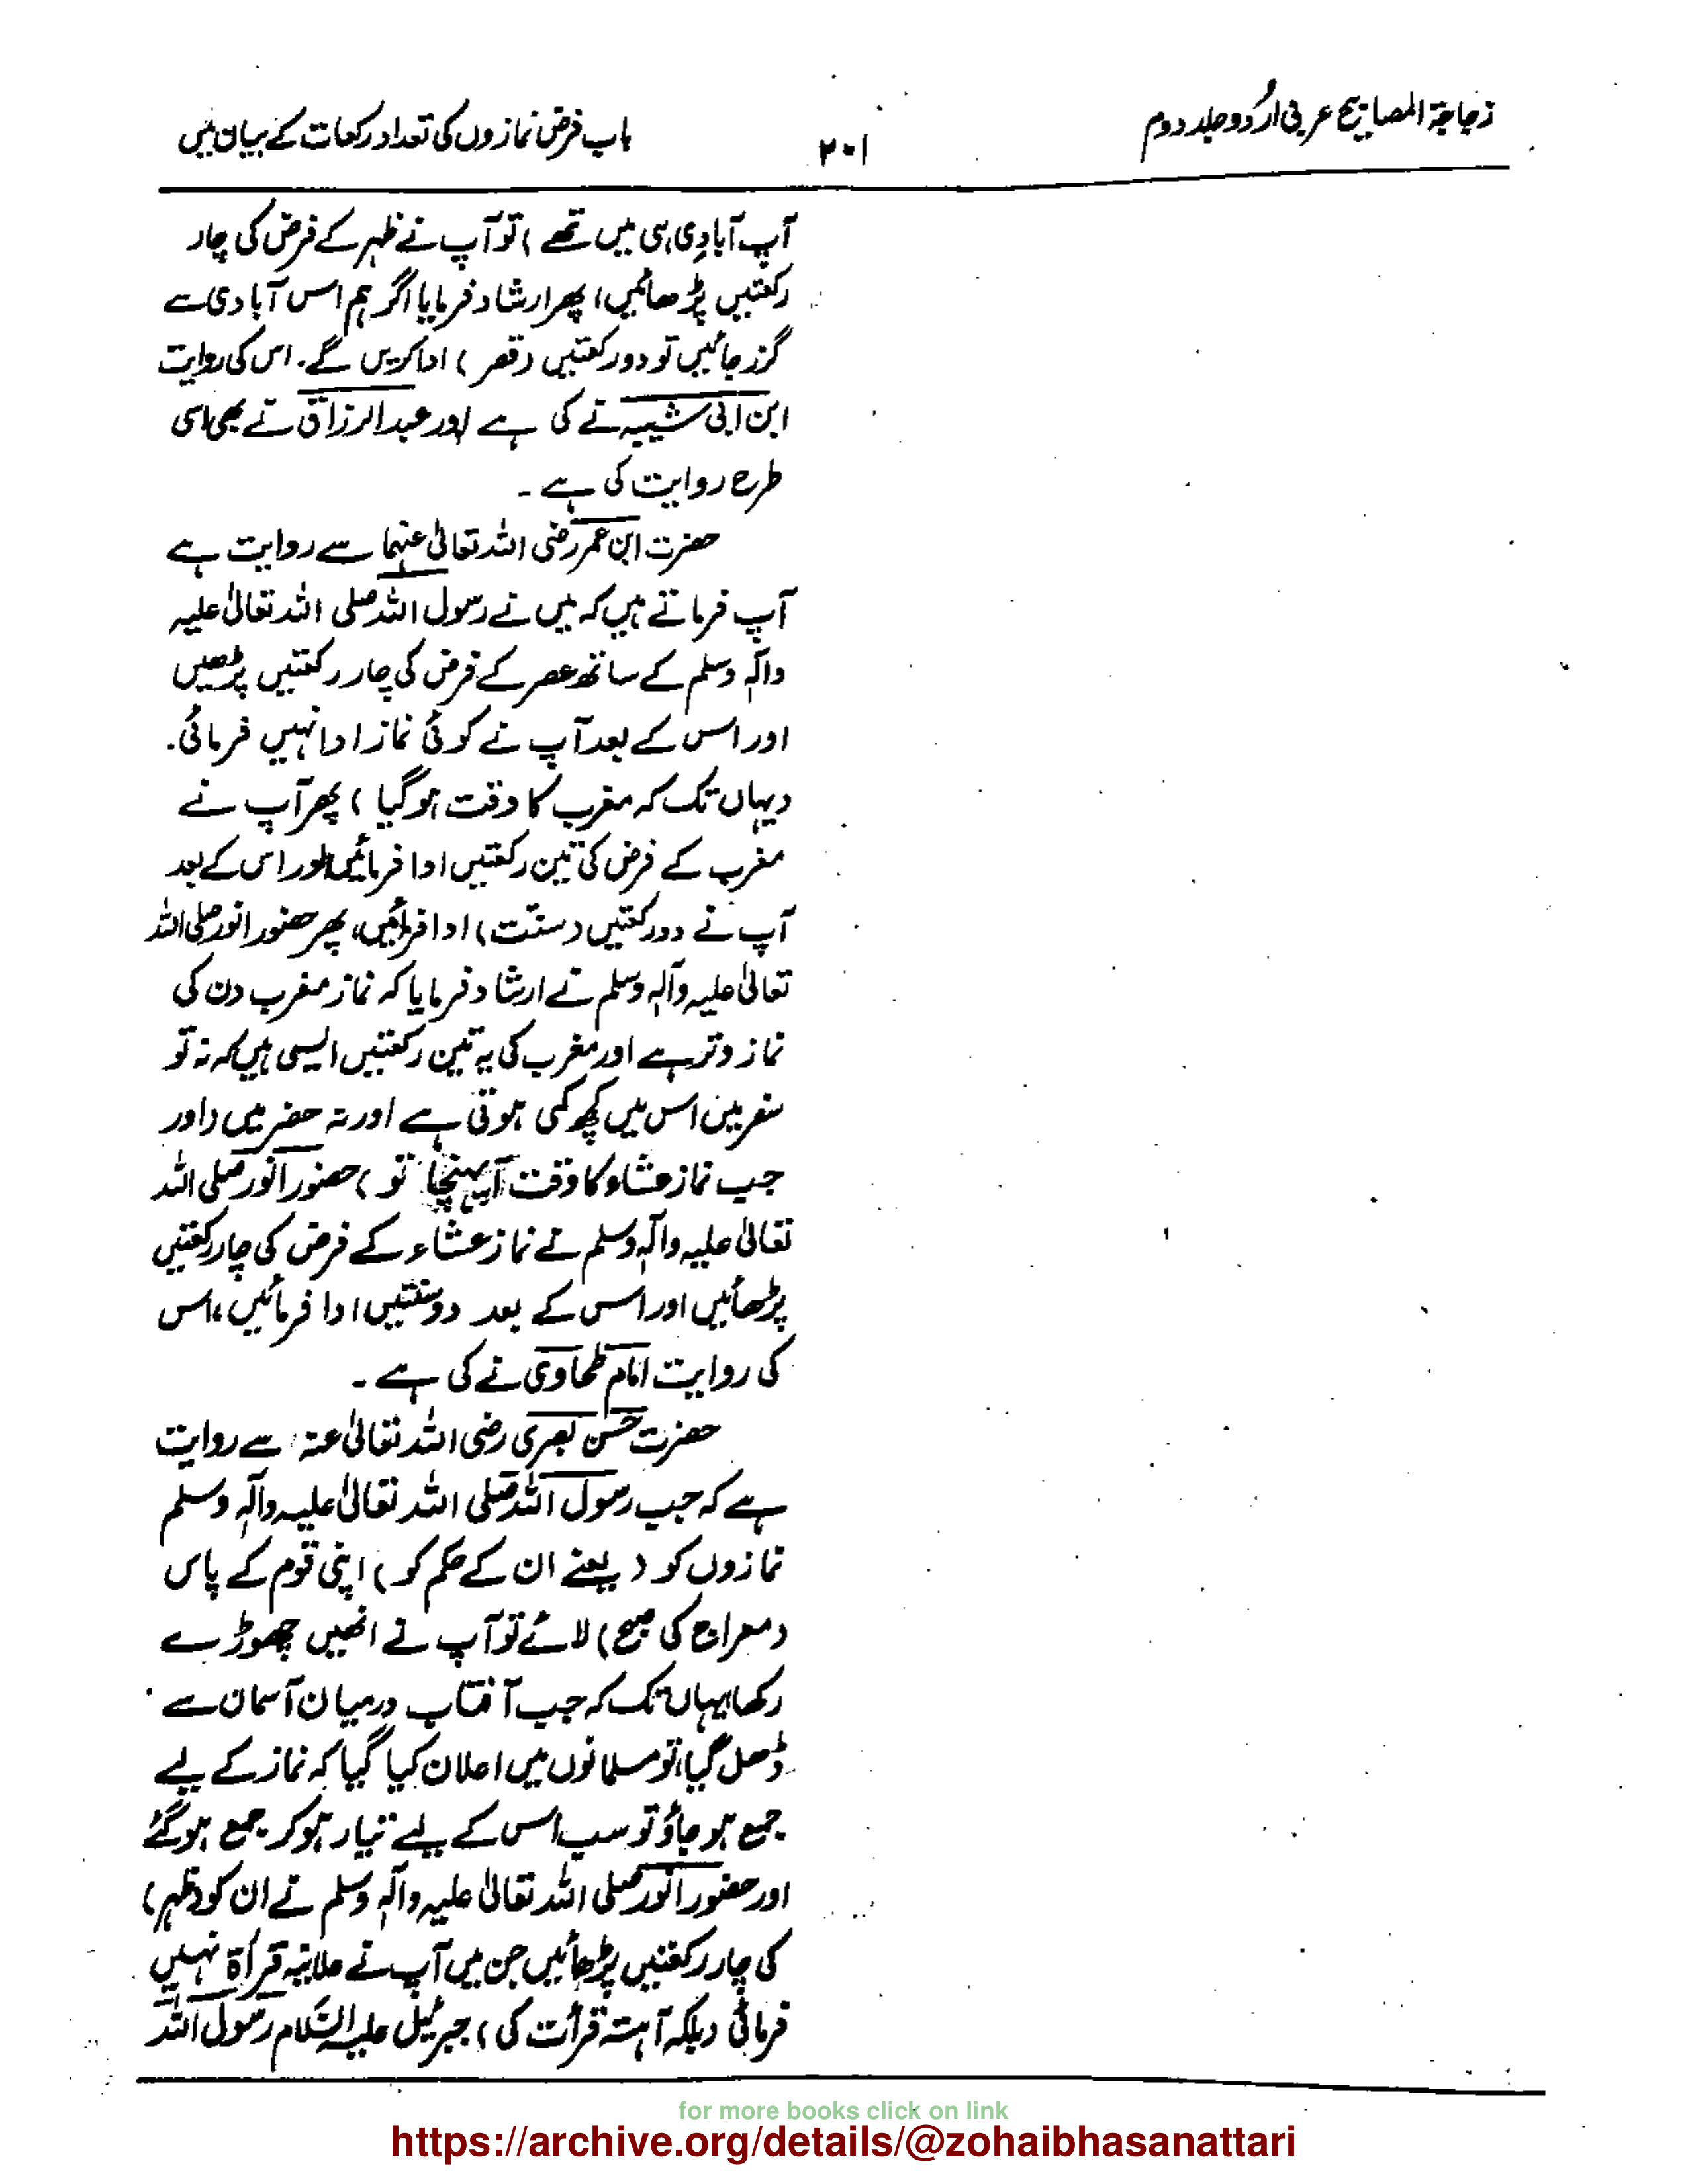 زجاجۃ المصابیح عربی اردو جلد دوم
۲۰۱
باب فرض نمازوں کی تعداد رکعات کے بیان میں
آپ آبادی ہی میں تھے) تو آپ نے ظہر کے فرض کی چار
رکعتیں پڑھائیں، پھر ارشاد فرمایا اگر ہم اس آبادی سے
گزر جائیں تو دو رکعتیں (قصر) ادا کریں گے۔ اس کی روایت
ابن ابی شیبہ نے کی ہے اور عبدالرزاق نے بھی اسی
طرح روایت کی ہے ۔
حضرت ابن عمر رضی اللہ تعالیٰ عنہما سے روایت ہے
آپ فرماتے ہیں کہ میں نے رسول اللہ صلی اللہ تعالیٰ علیہ
وآلہ وسلم کے ساتھ عصر کے فرض کی چار رکعتیں پڑھیں
اور اس کے بعد آپ نے کوئی نماز ادا نہیں فرمائی۔
(یہاں تک کہ مغرب کا وقت ہو گیا) پھر آپ نے
مغرب کے فرض کی تین رکعتیں ادا فرمائیں اور اس کے بعد
آپ نے دو رکعتیں (سنّت) ادا فرمائیں، پھر حضور انور صلی اللہ
تعالیٰ علیہ وآلہ وسلم نے ارشاد فرمایا کہ نماز مغرب دن کی
نماز وتر ہے اور مغرب کی یہ تین رکعتیں ایسی ہیں کہ نہ تو
سفر میں اس میں کچھ کمی ہوتی ہے اور نہ حضر میں (اور
جب نماز عشاء کا وقت آپہنچا تو) حضور انور صلی اللہ
تعالیٰ علیہ وآلہ وسلم نے نماز عشاء کے فرض کی چار رکعتیں
پڑھائیں اور اس کے بعد دو سنتیں ادا فرمائیں، اس
کی روایت امام طحاوی نے کی ہے ۔
حضرت حسن بصری رضی اللہ تعالیٰ عنہ سے روایت
ہے کہ جب رسول اللہ صلی اللہ تعالیٰ علیہ وآلہ وسلم
نمازوں کو (یعنے ان کے حکم کو) اپنی قوم کے پاس
(معراج کی صبح) لائے تو آپ نے انھیں چھوڑے
رکھا یہاں تک کہ جب آفتاب درمیان آسمان سے
ڈھل گیا، تو مسلمانوں میں اعلان کیا گیا کہ نماز کے لیے
جمع ہو جاؤ تو سب اس کے لیے تیار ہو کر جمع ہو گئے
اور حضور انور صلی اللہ تعالیٰ علیہ وآلہ وسلم نے ان کو (ظہر)
کی چار رکعتیں پڑھائیں جن میں آپ نے علانیہ قرأۃ نہیں
فرمائی (بلکہ آہستہ قرأت کی) جبرئیل علیہ السّلام رسول اللہ
for more books click on link
https://archive.org/details/@zohaibhasanattari